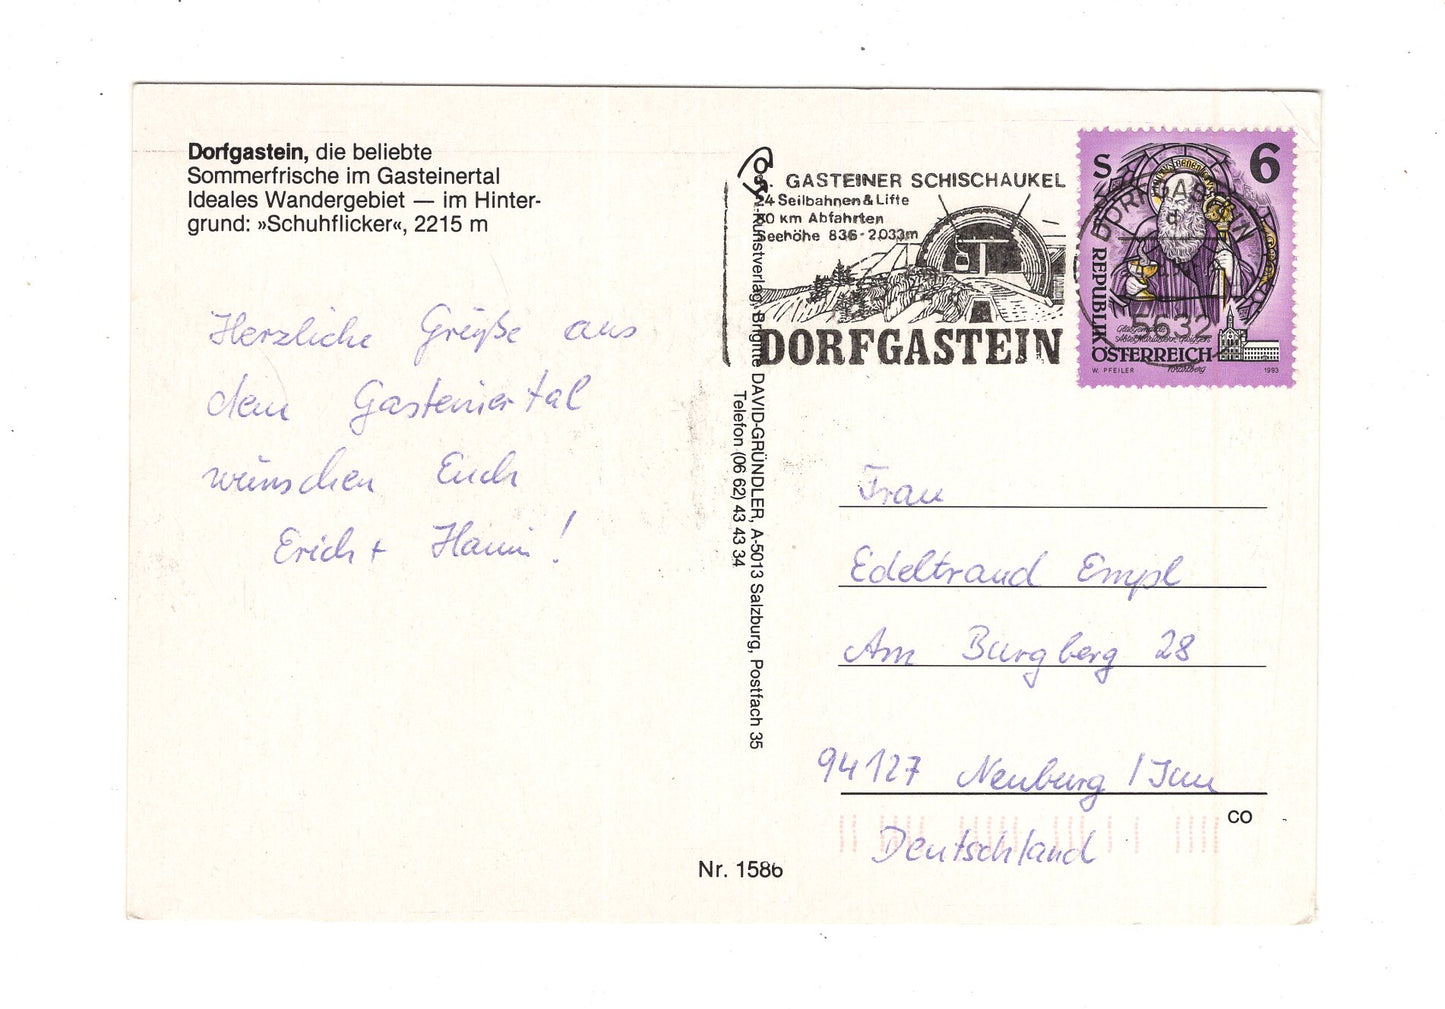 Dorfgastein, die beliebte
Sommerfrische im Gasteinertal
Ideales Wandergebiet — im Hinter-
grund: »Schuhflicker«, 2215 m
Herzliche Grüße aus
dem Gasteinertal
wünschen Euch
Erich + Hanni!
GASTEINER SCHISCHAUKEL
24 Seilbahnen & Lifte
km Abfahrten
Seehöhe 836-2.033m
DORFGASTEIN
DORFGASTEIN
5632
S 6
REPUBLIK
ÖSTERREICH
W. PFEILER 1993
Kunstverlag, Brigitte DAVID-GRÜNDLER, A-5013 Salzburg, Postfach 35
Telefon (06 62) 43 43 34
Frau
Edeltraud Empl
Am Burgberg 28
94127 Neuburg / Inn
CO
Deutschland
Nr. 1586